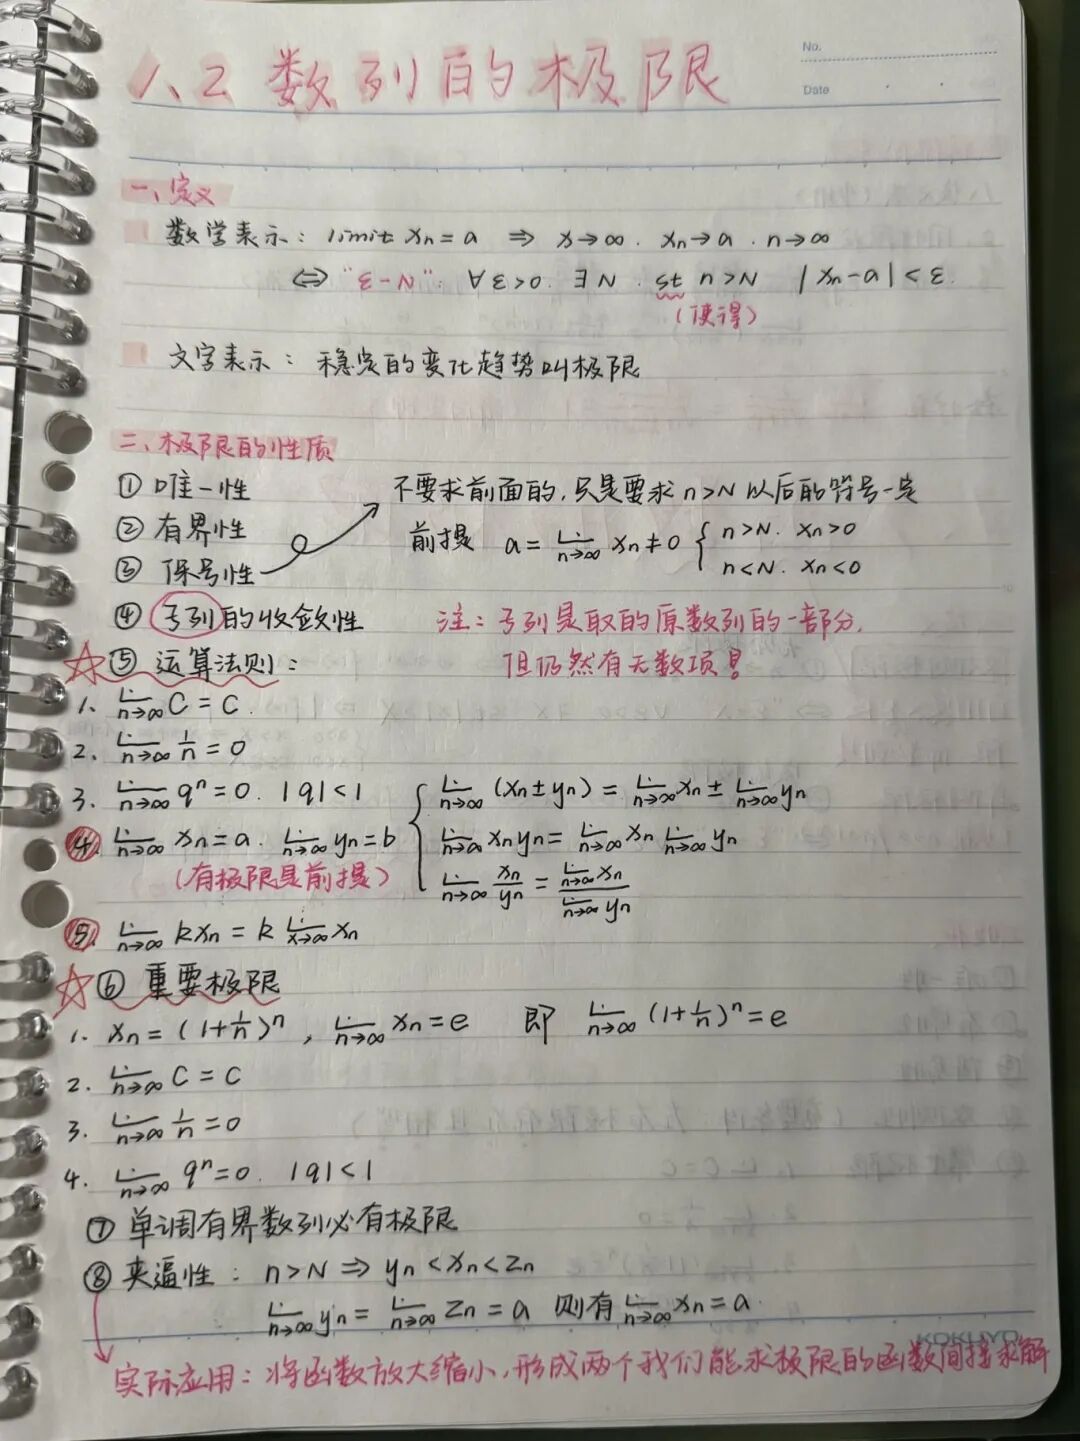 1、2 数列的极限
No.
Date
一、定义
数学表示: limit xn = a ⇒ x→∞. xn→a. n→∞
⇔ "ε-N": ∀ε>0. ∃N. st n>N |xn-a|<ε.
(使得)
文字表示: 稳定的变化趋势叫极限
二、极限的性质
① 唯一性
不要求前面的, 只是要求n>N以后的符号一定
② 有界性
前提 a = lim n→∞ xn≠0 { n>N. xn>0
n<N. xn<0
③ 保号性
④ 子列的收敛性
注: 子列是取的原数列的一部分,
但仍然有无数项!
☆⑤ 运算法则:
1. lim n→∞ C = C.
2. lim n→∞ 1/n = 0
3. lim n→∞ qⁿ = 0. |q|<1
④. lim n→∞ xn = a. lim n→∞ yn = b
(有极限是前提)
{ lim n→∞ (xn±yn) = lim n→∞ xn ± lim n→∞ yn
lim n→a xnyn = lim n→∞ xn lim n→∞ yn
lim n→∞ xn/yn = lim n→∞ xn / lim n→∞ yn
⑤. lim n→∞ kxn = k lim x→∞ xn
☆⑥ 重要极限
1. xn = (1+1/n)ⁿ, lim n→∞ xn = e 即 lim n→∞ (1+1/n)ⁿ = e
2. lim n→∞ C = C
3. lim n→∞ 1/n = 0
4. lim n→∞ qⁿ = 0. |q|<1
⑦ 单调有界数列必有极限
⑧ 夹逼性: n>N ⇒ yn<xn<zn
lim n→∞ yn = lim n→∞ zn = a 则有 lim n→∞ xn = a.
KOKUYO
实际应用: 将函数放大缩小, 形成两个我们能求极限的函数间接求解